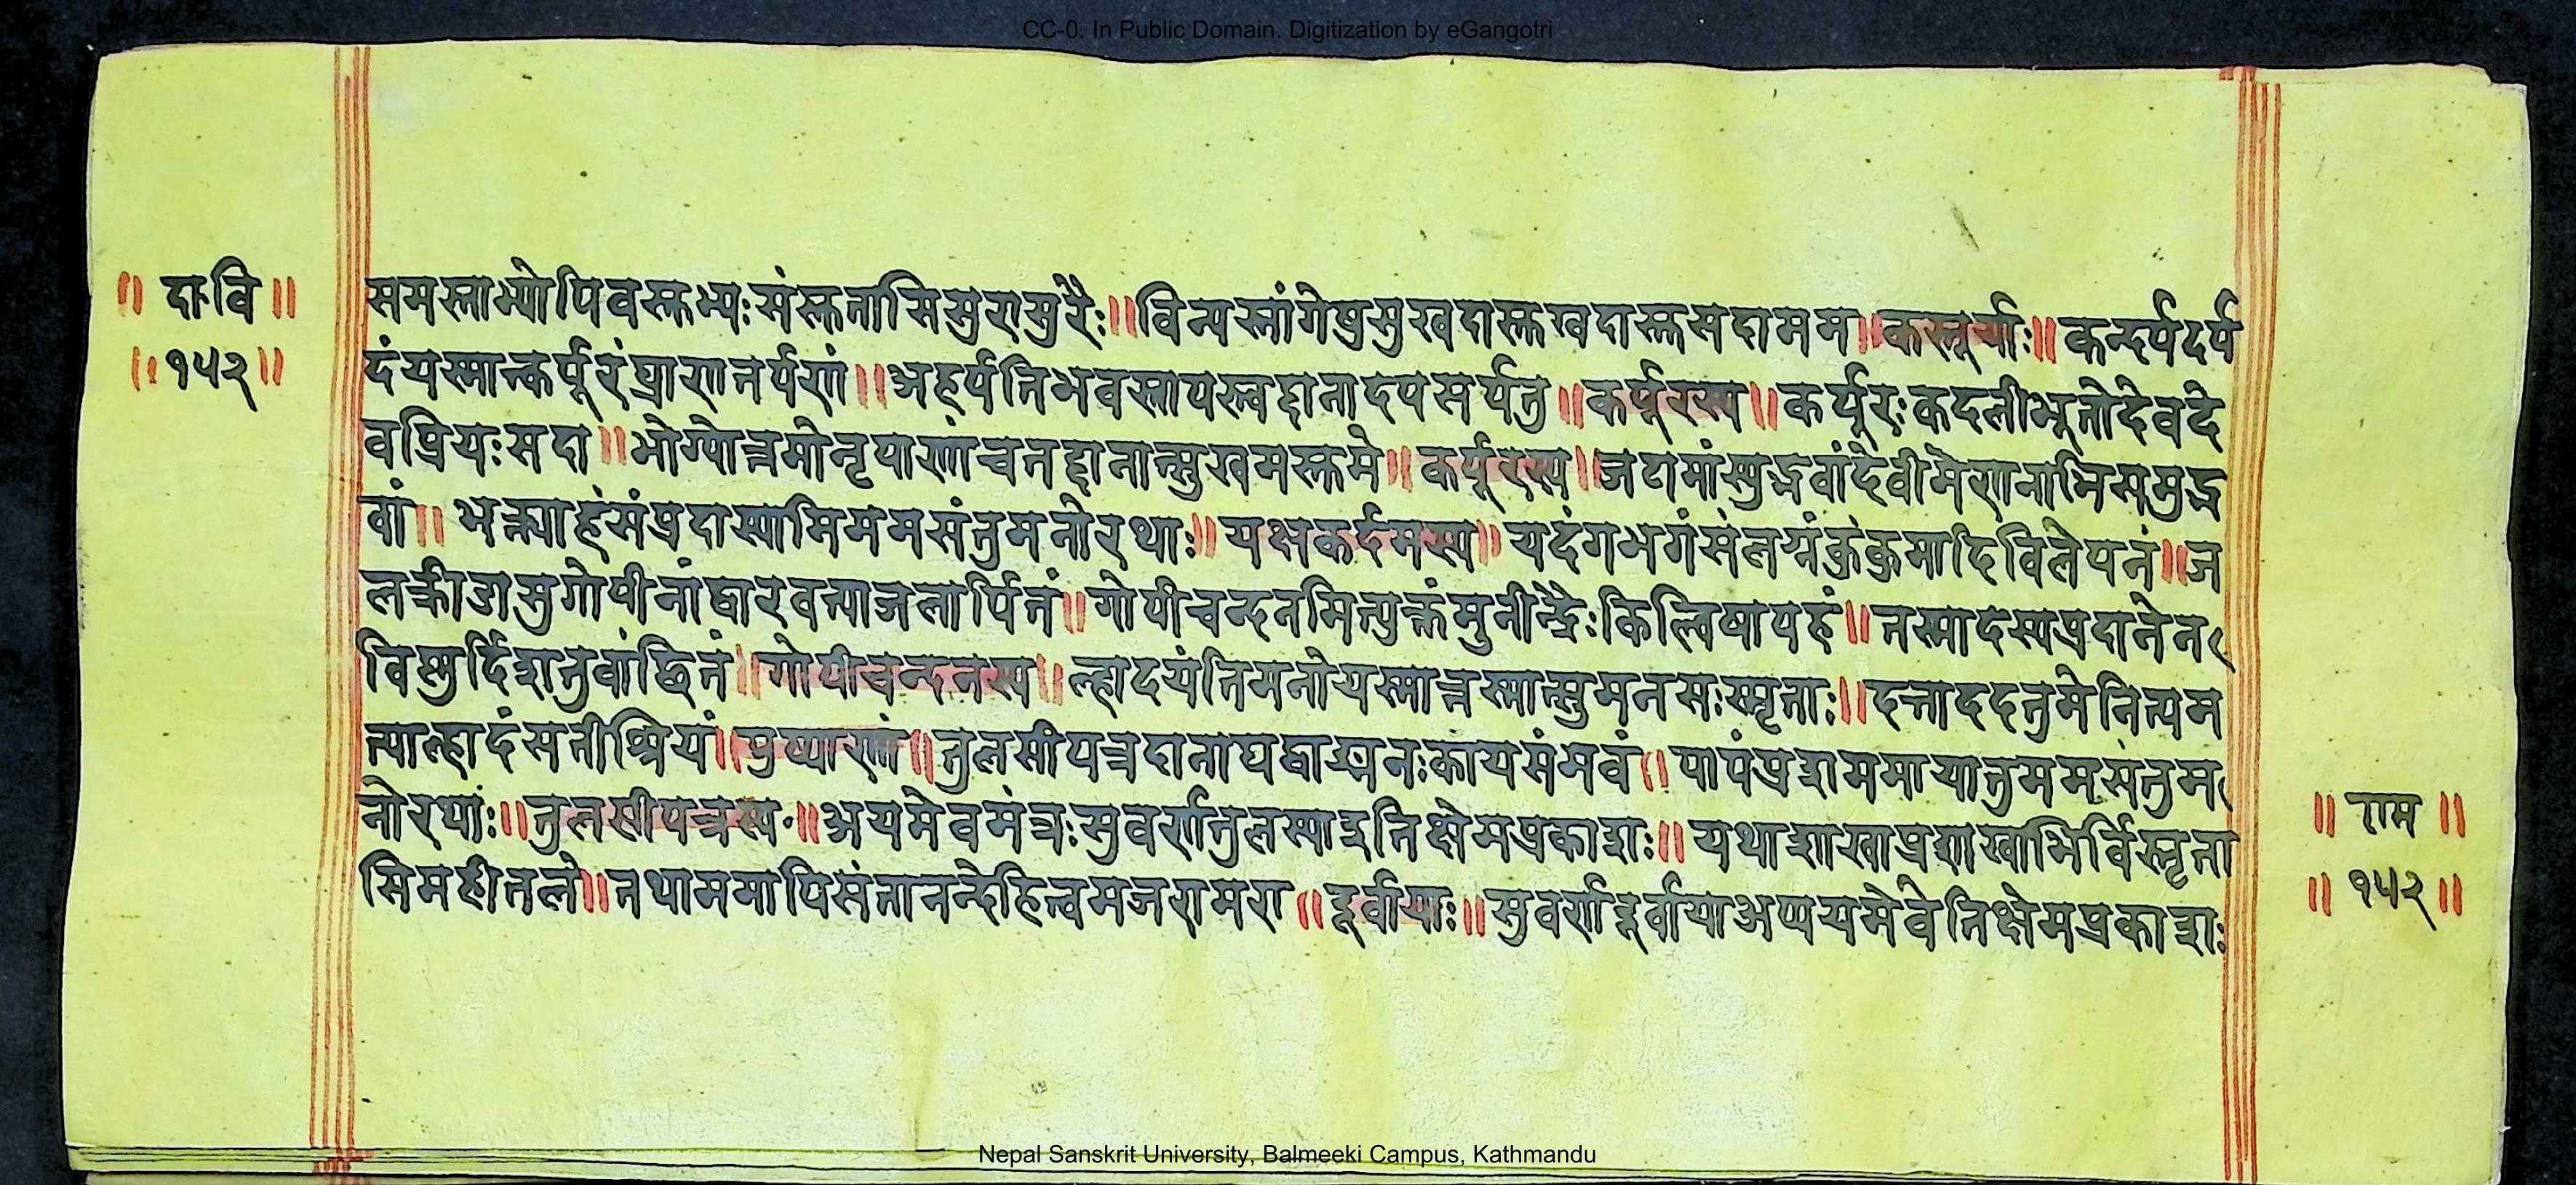 CC-0. In Public Domain. Digitization by eGangotri
॥ दा॰वि ॥
॥ १५२ ॥
समस्ताभ्योपिवस्तुभ्यःसंस्तुतासिसुरासुरैः॥विन्यस्तांगेषुसुखदास्तुखदास्तुसदामम॥कस्तूर्याः॥कन्दर्पदर्प
दंयस्मात्कर्पूरंघ्राणतर्पणं॥अहर्पतिभवस्तापस्त्वद्दानादपसर्पतु॥कर्पूरस्य॥कर्पूरःकदलीभूतोदेवदे
वप्रियःसदा॥भोग्योत्तमोनृपाणांचतद्दानात्सुखमस्तुमे॥कर्पूरस्य॥जटामांस्युद्भवांदेवीमेणनाभिसमुद्भ
वां॥भक्त्याहंसंप्रदास्यामिममसंतुमनोरथाः॥यक्षकर्दमस्य॥यदंगभगंसंलग्नंकुंकुमादिविलेपनं॥ज
लक्रीडासुगोपीनांद्वारवत्याजलार्पितं॥गोपीचन्दनमित्युक्तंमुनीन्द्रैःकिल्विषापहं॥तस्मादस्यप्रदानेन
विस्तुर्दिशतुवांछितं॥गोपीचन्दनस्य॥ल्हादयंतिमनोयस्मात्तस्मात्सुमनसःस्मृताः॥दत्ताददतुमेनित्यम
त्याल्हादंसतीश्रियं॥पुष्पाणां॥तुलसीपत्रदानाघद्वाङ्मनःकायसंभवं॥पापंप्रशममायातुममसंतुम
नोरथाः॥तुलसीपत्रस्य॥अयमेवमंत्रःसुवर्णतुलस्याइतिक्षेमप्रकाशः॥यथाशाखाप्रशाखाभिर्विस्तृता
सिमहीतले॥तथाममापिसंतानन्देहित्वमजरामरा॥दूर्वायाः॥सुवर्णदूर्वायाअप्ययमेवेतिक्षेमप्रकाशः
॥ राम ॥
॥ १५२ ॥
Nepal Sanskrit University, Balmeeki Campus, Kathmandu